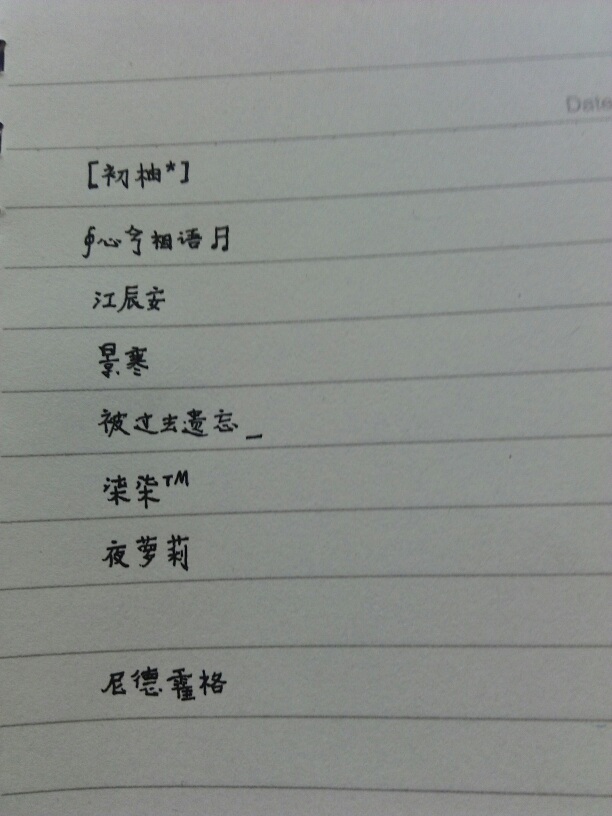 Date
[初柚*]
∮心兮相语♬
江辰安
景寒
被过去遗忘_
柒柒™
夜萝莉
尼德霍格